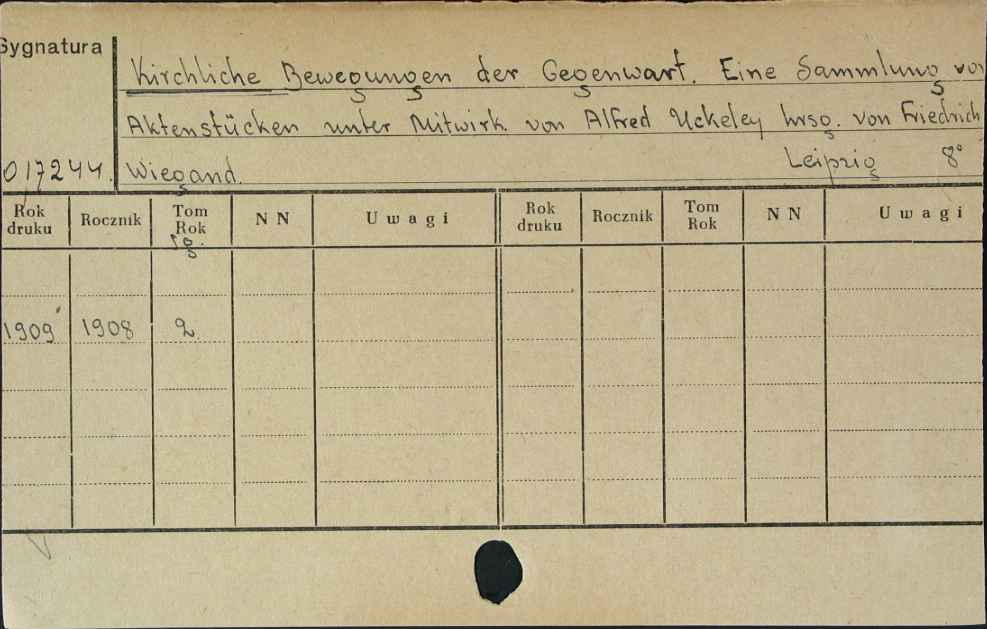 Sygnatura
Kirchliche Bewegungen der Gegenwart. Eine Sammlung von
Aktenstücken unter Mitwirk. von Alfred Uckeley hrsg. von Friedrich
017244. Wiegand. Leipzig 8°
Rok druku Rocznik Tom Rok NN Uwagi Rok druku Rocznik Tom Rok NN Uwagi
1909 1908 2.